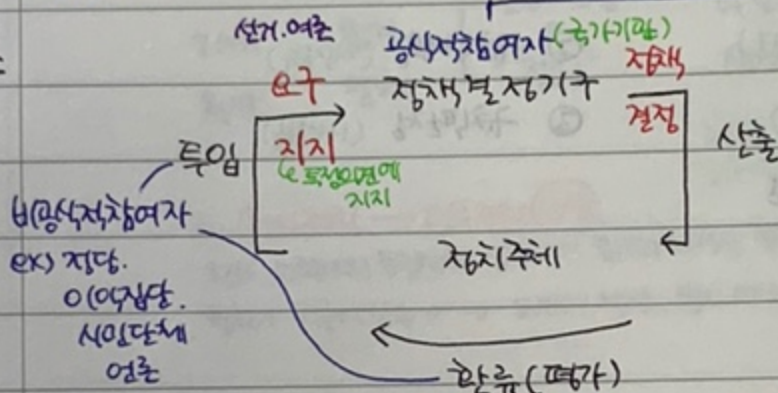 선거.여론
공식적참여자(국가기관)
요구
정책결정기구
정책
결정
투입
지지
특정의견에
지지
산출
비공식적참여자
ex) 정당.
이익집단.
시민단체
언론
정치주체
환류(평가)